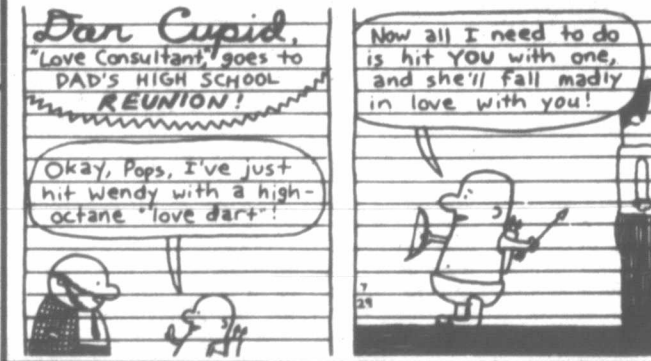 Dan Cupid,
"Love Consultant," goes to
DAD'S HIGH SCHOOL
REUNION!
Okay, Pops, I've just
hit Wendy with a high-
octane "love dart"!
Now all I need to do
is hit YOU with one,
and she'll fall madly
in love with you!
7
29